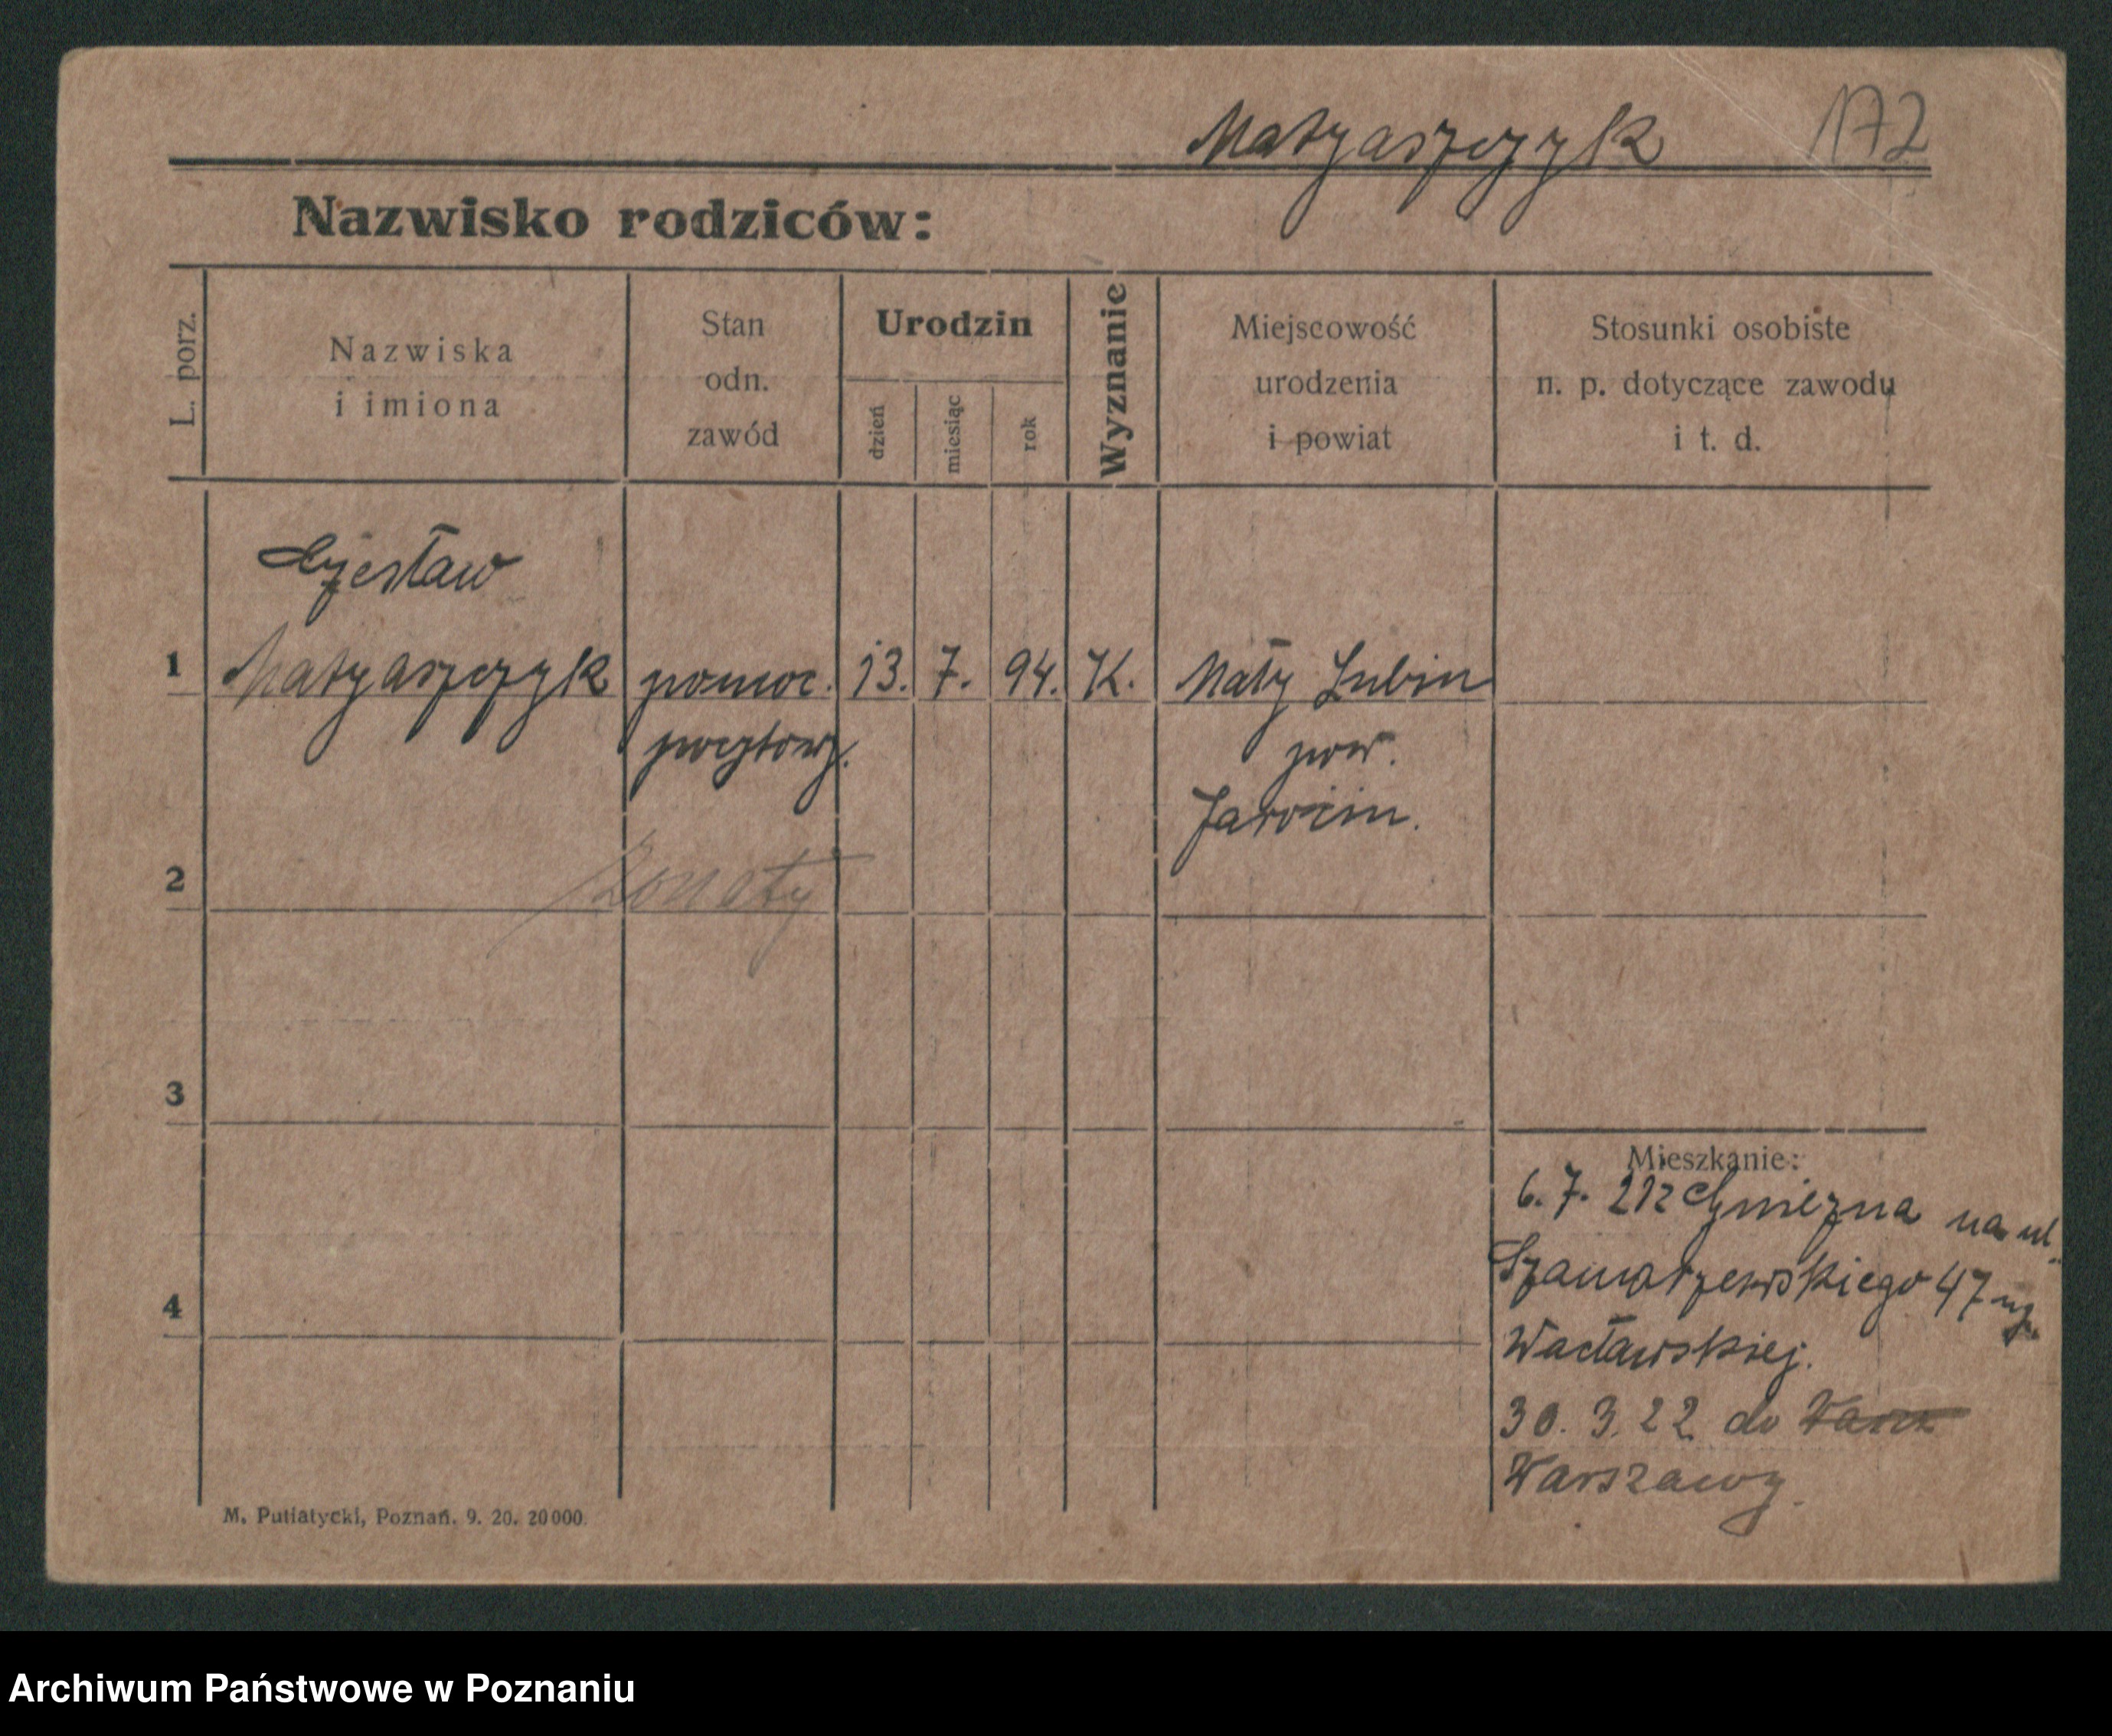 Matyaszczyk 172
Nazwisko rodziców:
L. porz.
Nazwiska
i imiona
Stan
odn.
zawód
Urodzin
dzień
miesiąc
rok
Wyznanie
Miejscowość
urodzenia
i powiat
Stosunki osobiste
n. p. dotyczące zawodu
i t. d.
Czesław
1 Matyaszczyk pomoc. 13. 7. 94. K. Mały Lubin
pocztowy. pow.
Jarocin.
2 żonaty
3
Mieszkanie:
6. 7. 21 z Gniezna na ul.
Szamarzewskiego 47
4
Wacławskiej.
30. 3. 22 do
Warszawy.
M. Putiatycki, Poznań. 9. 20. 20 000.
Archiwum Państwowe w Poznaniu